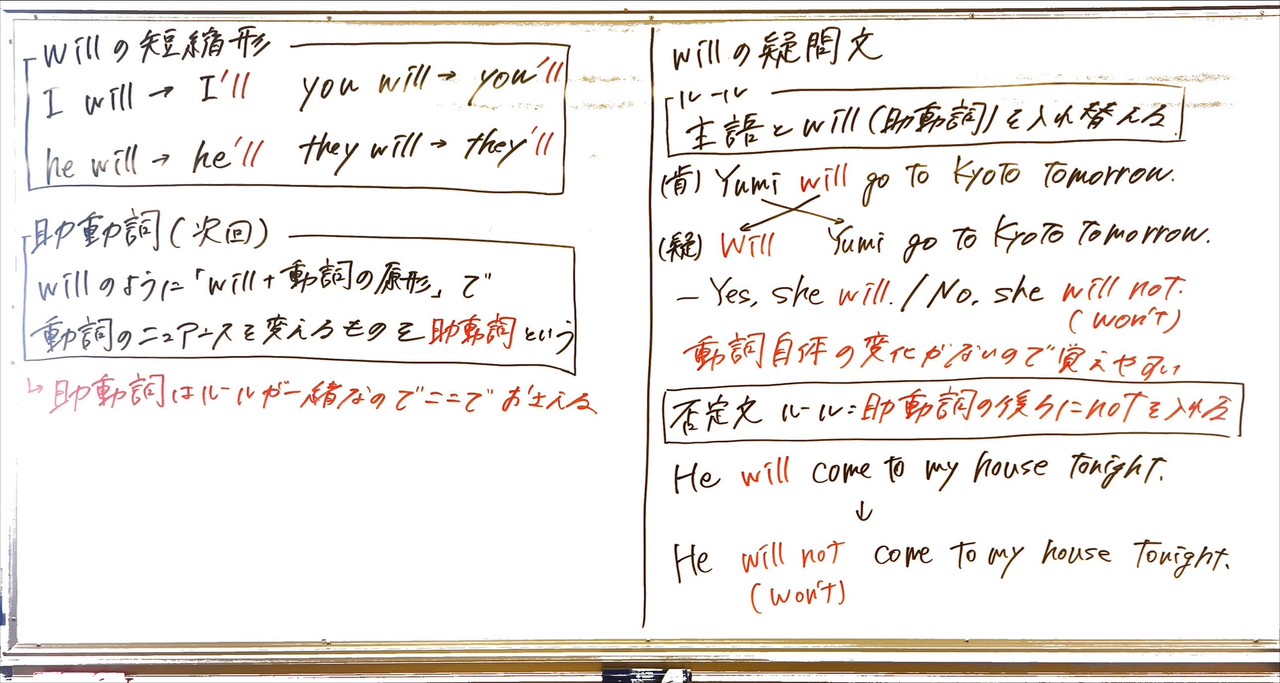 willの短縮形
I will → I'll you will → you'll
he will → he'll they will → they'll
助動詞(次回)
willのように「will+動詞の原形」で
動詞のニュアンスを変えるものを助動詞という
↳助動詞はルールが一緒なのでここでおさえる
willの疑問文
ルール
主語とwill(助動詞)を入れ替える
(肯) Yumi will go to Kyoto tomorrow.
(疑) Will Yumi go to Kyoto tomorrow.
– Yes, she will. / No, she will not.
(won't)
動詞自体の変化がないので覚えやすい
否定文 ルール:助動詞の後ろにnotを入れる
He will come to my house tonight.
↓
He will not come to my house tonight.
(won't)